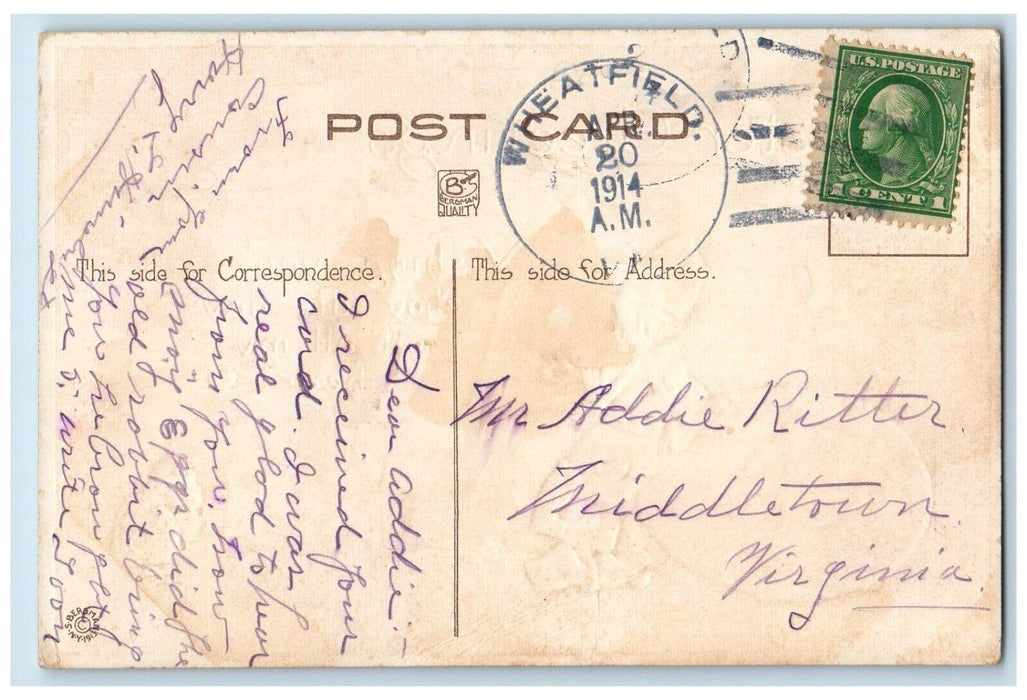 POST CARD.
WHEATFIELD.
APR
20
1914
A.M.
U.S. POSTAGE
1 CENT 1
BS
BERGMAN
QUALITY
This side for Correspondence.
This side for Address.
Dear Addie -
I received your
card. I was
real glad to hear
from you. How
many Eggs did the
old rabbit bring
you
me write soon
From
Cousin
Mr Addie Ritter.
Middletown
Virginia
S. BERGMAN N.Y. 1913
©